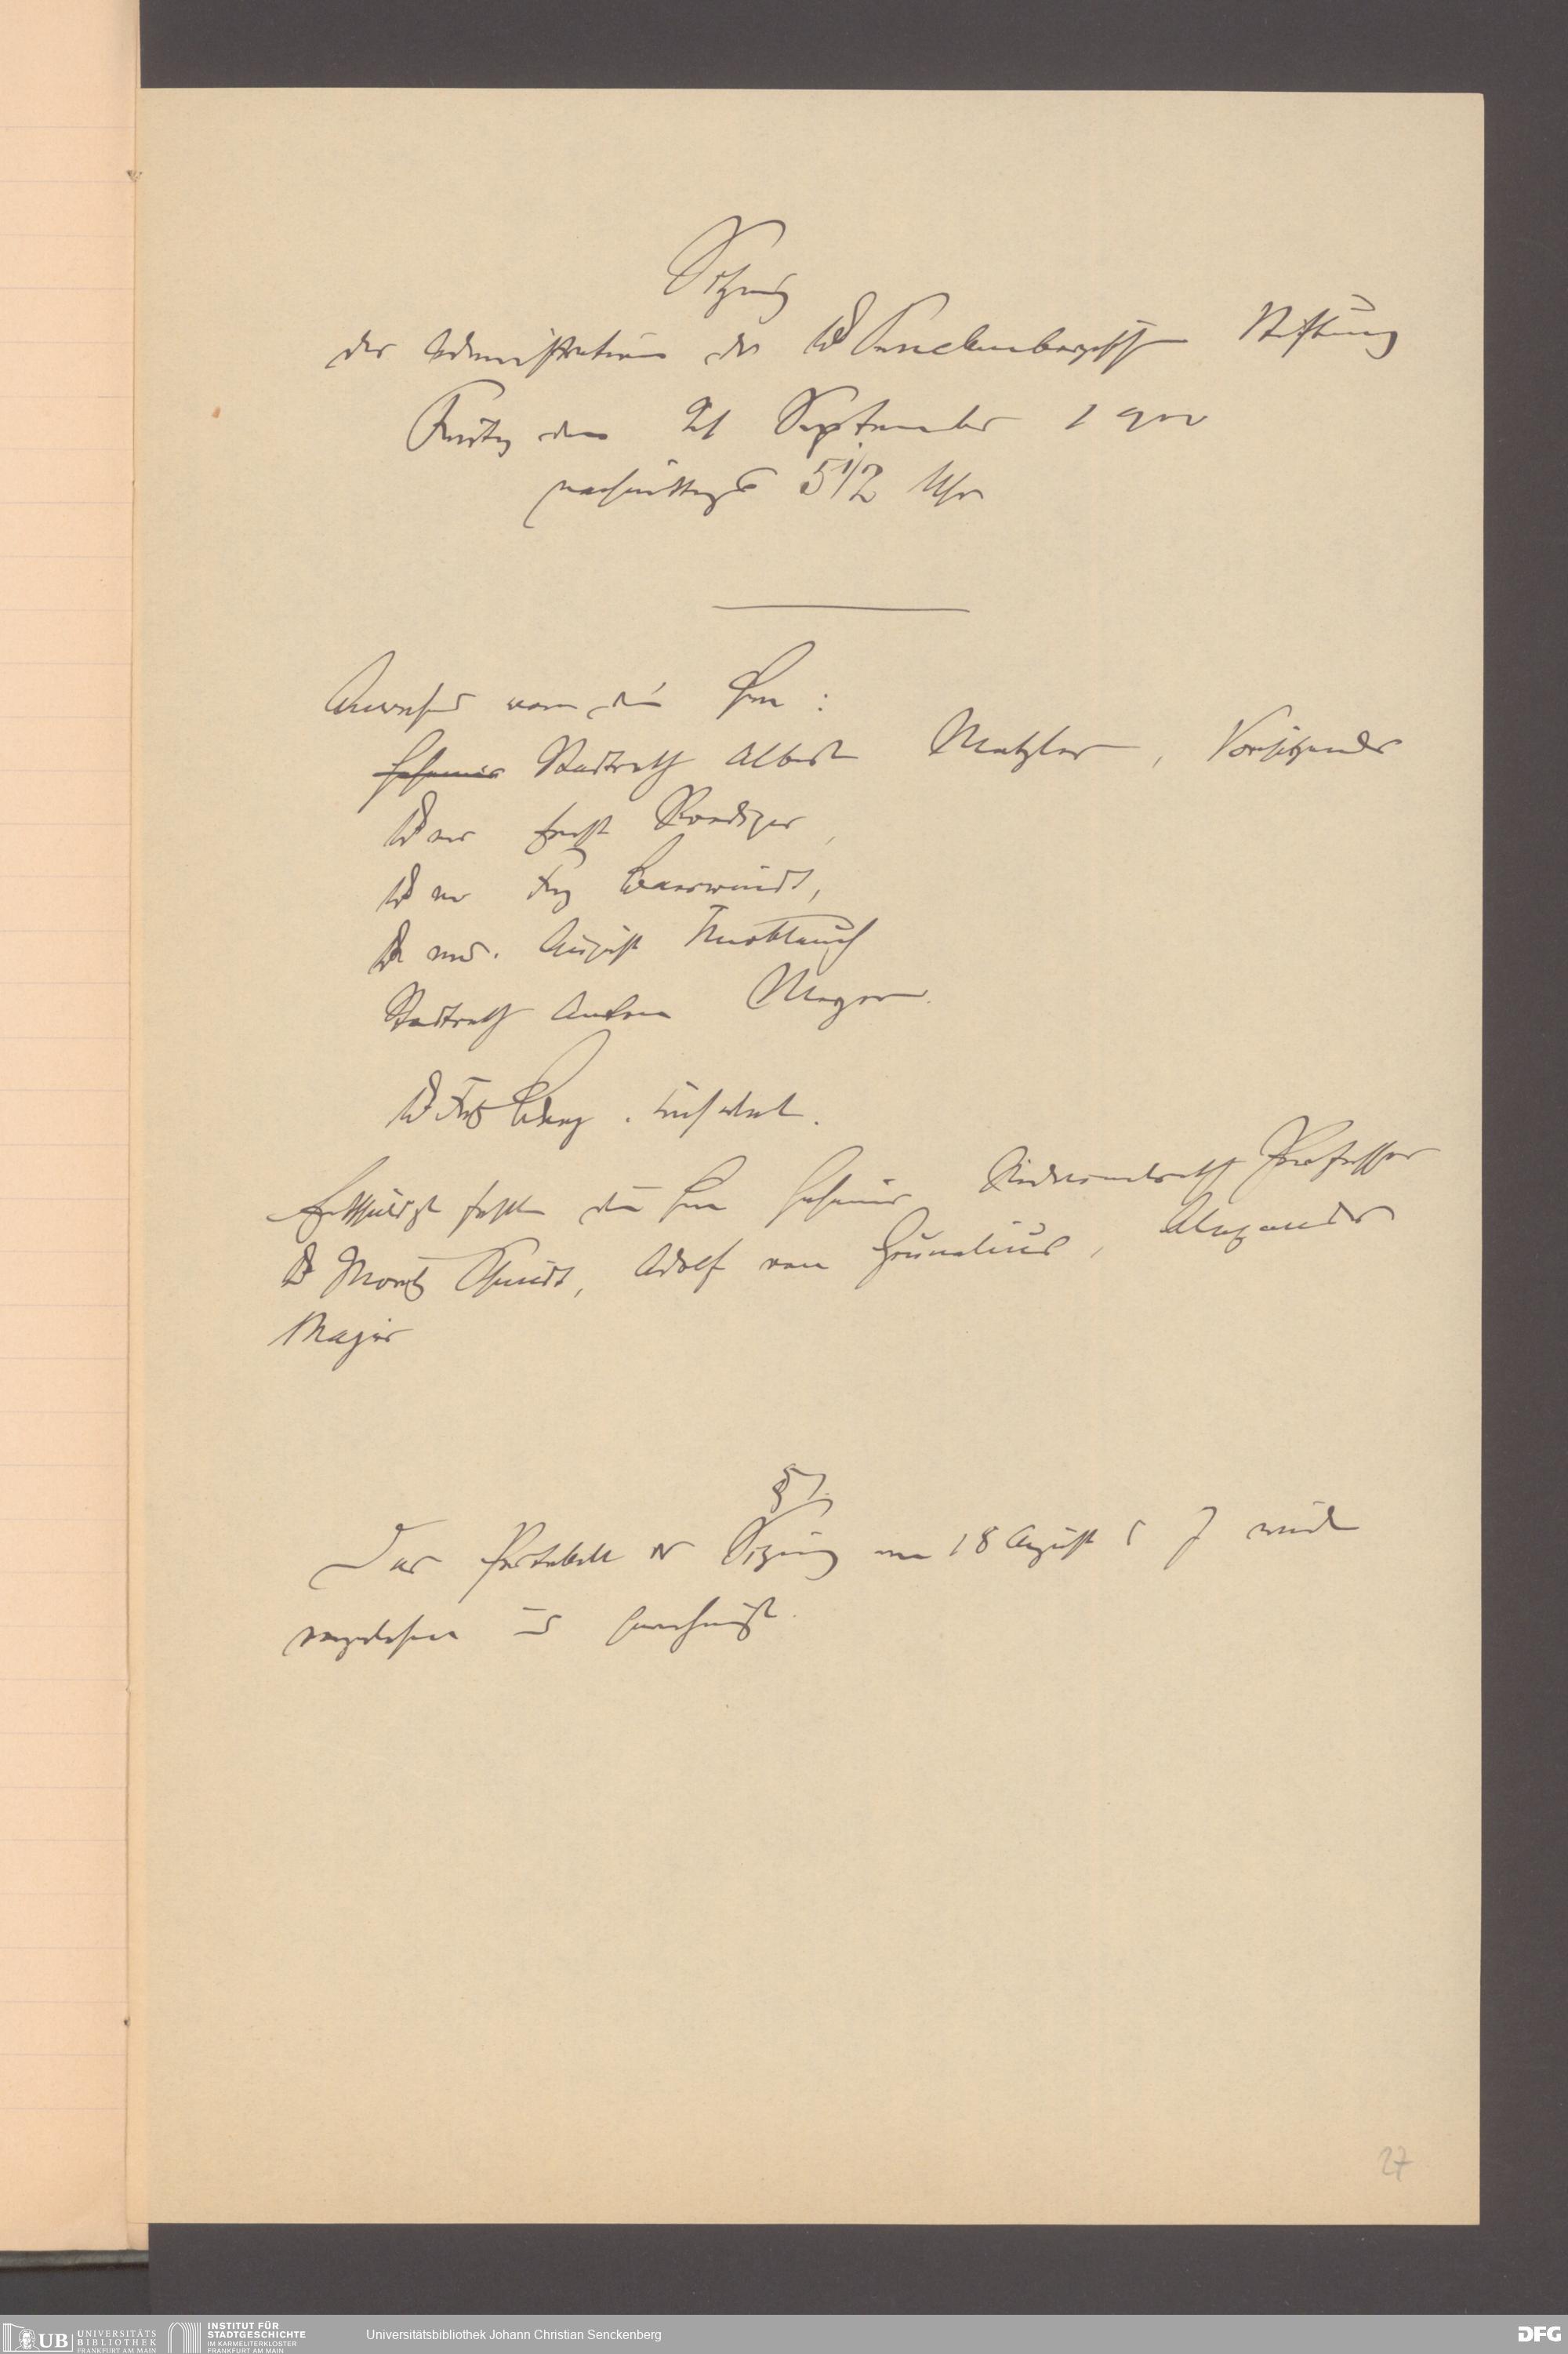 Sitzung
der Administration der Dr Senckenbergischen Stiftung
Freitag den 21 September 1900
nachmittags 5 1/2 Uhr
Anwesend waren die Herren :
Geheimer Stadtrath Albert Metzler, Vorsitzender
Dr med Ernst Roediger,
Dr med Franz Baerwindt,
Dr med. August Knoblauch
Stadtrath Anton Meyer.
Dr Fritz Berg.
Entschuldigt fehlten die Herren Geheimer Sanitätsrath Professor
Dr Moritz Schmidt, Adolf von Grunelius, Alexander
Majer
§ 1.
Das Protokoll der Sitzung vom 18 August d J wird
vorgelesen und genehmigt.
27
UB UNIVERSITÄTS BIBLIOTHEK FRANKFURT AM MAIN
INSTITUT FÜR STADTGESCHICHTE IM KARMELITERKLOSTER FRANKFURT AM MAIN
Universitätsbibliothek Johann Christian Senckenberg
DFG